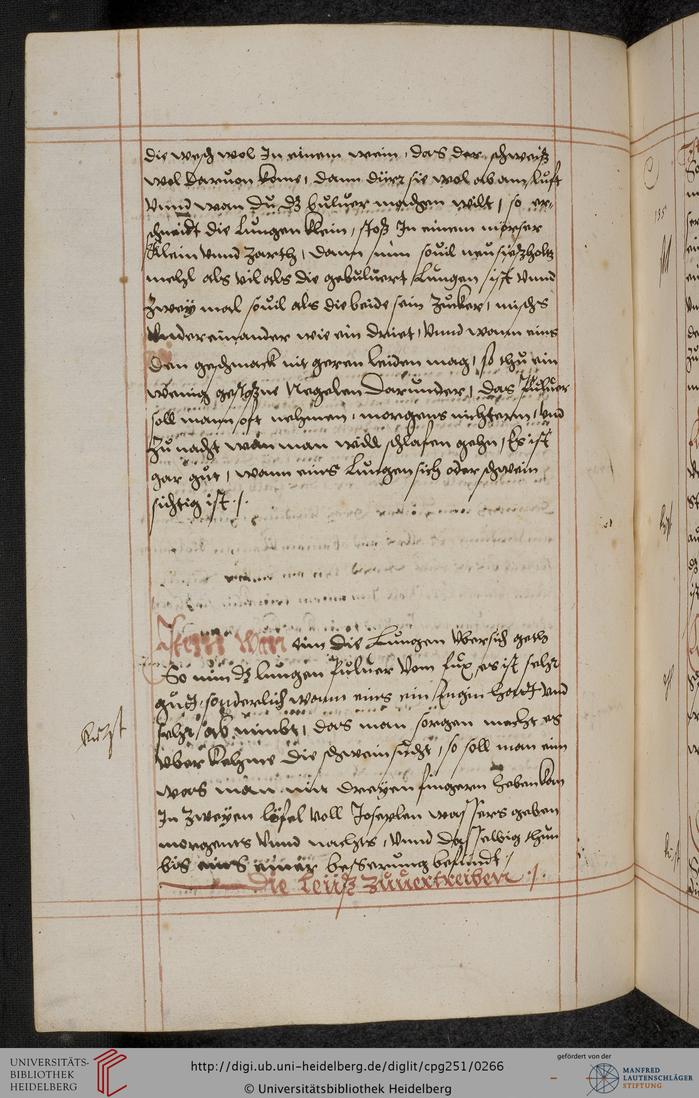 die wesch wol In einem wein, das der schweiß
wol daruon kome, dann dürr sie wol ab am lufft
vnnd wan du dz puluer machen wilt, so er-
schneidt die Lungen klein, stoß In einem mörser
klein vnnd zarth, dann nim souil neu süeßholtz
mehl als vil als die gebuluert Lungen ist vnnd
zwey mal souil als die beide sein zucker, mischs
vnder einander wie ein driet, vnnd wann eins
den geschmack nit geren leiden mag, so thu ein
wenig gestoßne Negelen darunder, das Puluer
soll mann offt nehmen, morgens nichtern, vnd
zu nacht wan man will schlafen gehn, Es ist
gar gut, wann eins Lungensich oder schwein
sichtig ist /.
Item wan eim die Lungen vbersich geth
So nim dz lungen Puluer vom fux, es ist sehr
gudt, sonderlich wann eins ein hat vnd
sehr ab nimbt, das man sorgen mecht es
vber kehme die schweinsucht, so soll man eim
was man mit dreyen fingern heben kan
In zweyen löfel voll wassers geben
morgents vnnd nachts, vnnd dasselbig thun
bis eins einer besserung befindt /
Die Leüß zuuertreiben /.
UNIVERSITÄTS-
BIBLIOTHEK
HEIDELBERG
http://digi.ub.uni-heidelberg.de/diglit/cpg251/0266
© Universitätsbibliothek Heidelberg
gefördert von der
MANFRED
LAUTENSCHLÄGER
STIFTUNG